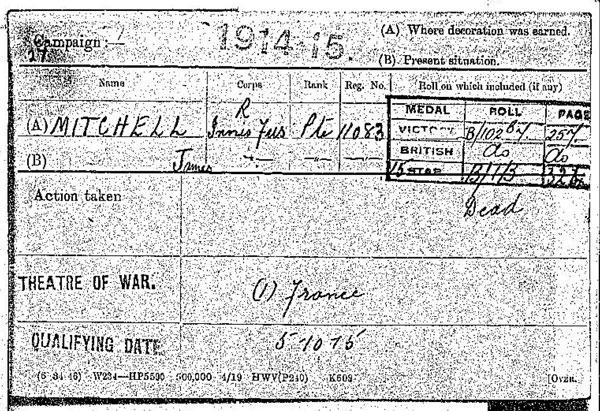 Campaign :— 1914-15. (A) Where decoration was earned.
(B) Present situation.
Name Corps Rank Reg. No. Roll on which included (if any)
MEDAL ROLL PAGE
(A) MITCHELL R Innis Fus Pte 11083
VICTORY B/102 B7. 257.
BRITISH do do
(B) James
15 STAR B/1/B
Dead
Action taken
THEATRE OF WAR. (1) France
QUALIFYING DATE 5-10-15
(6 34 46) W234—HP5590 500,000 4/19 HWV(P240) K608 [OVER.